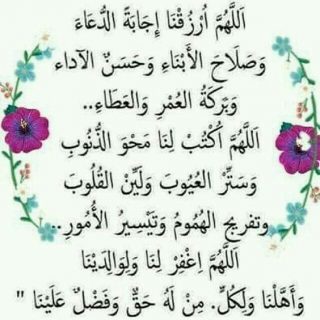 اَللَّهُمَّ اُرْزُقْنَا إِجَابَةً الدُّعَاءَ
وَصَلَاحَ الأَبْنَاءِ وَحَسَنُ الآداء
وَبَرَكَةُ العُمْرِ وَالعَطَاءِ..
اَللَّهُمَّ اُكْتُبْ لِنَا مَحْوَ الذُّنُوبِ
وَسَتْرُ العُيُوبَ وَلَيِّنْ القُلُوبَ
وتفريج الهُمُومُ وَتَيْسِيرُ الأُمُورِ..
اَللَّهُمَّ اِغْفِرْ لَنَا وَلِوَالِدَيْنَا
وَأَهَلْنَا وَلِكُلٍّ. مِنْ لَهُ حَقٌّ وَفَضْلٌ عَلَيْنَا "